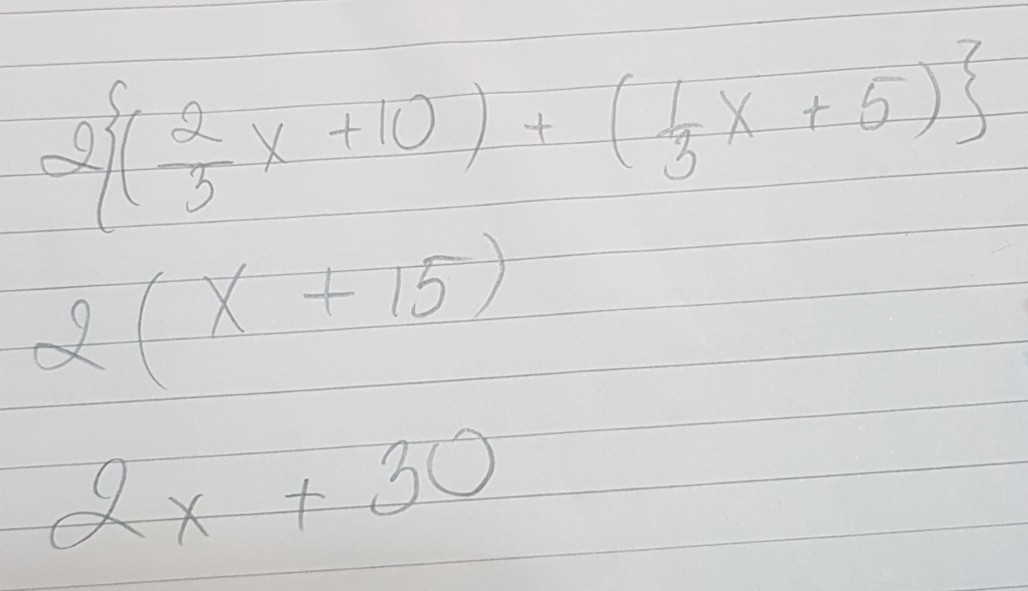 2{(2/3 x + 10) + (1/3 x + 5)}
2(x + 15)
2x + 30